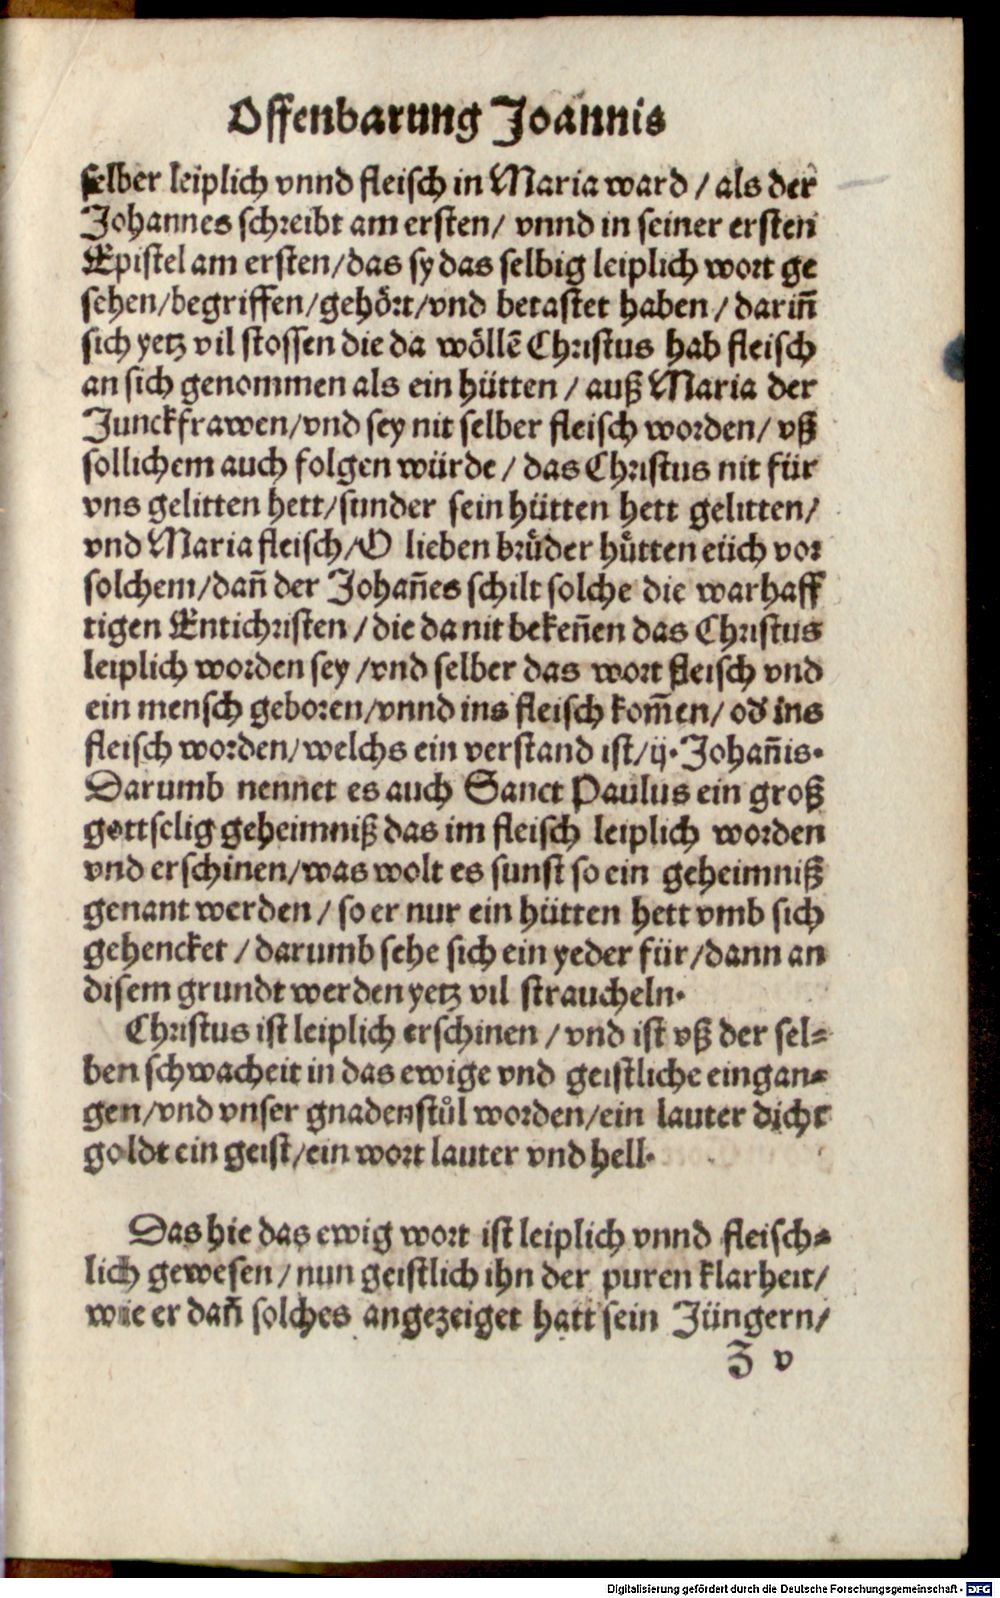 Offenbarung Joannis
selber leiplich vnnd fleisch in Maria ward / als der
Johannes schreibt am ersten / vnnd in seiner ersten
Epistel am ersten / das sy das selbig leiplich wort ge
sehen / begriffen / gehört / vnd betastet haben / dariñ
sich yetz vil stossen die da wöllẽ Christus hab fleisch
an sich genommen als ein hütten / auß Maria der
Junckfrawen / vnd sey nit selber fleisch worden / vß
sollichem auch folgen würde / das Christus nit für
vns gelitten hett / sunder sein hütten hett gelitten /
vnd Maria fleisch / O lieben brůder hůtten eüch vor
solchem / dañ der Johañes schilt solche die warhaff
tigen Entichristen / die da nit bekeñen das Christus
leiplich worden sey / vnd selber das wort fleisch vnd
ein mensch geboren / vnnd ins fleisch kom̃en / od' ins
fleisch worden / welchs ein verstand ist / ij. Johañis.
Darumb nennet es auch Sanct Paulus ein groß
gottselig geheimniß das im fleisch leiplich worden
vnd erschinen / was wolt es sunst so ein geheimniß
genant werden / so er nur ein hütten hett vmb sich
gehencket / darumb sehe sich ein yeder für / dann an
disem grundt werden yetz vil straucheln.
Christus ist leiplich erschinen / vnd ist vß der sel-
ben schwacheit in das ewige vnd geistliche eingan-
gen / vnd vnser gnadenstůl worden / ein lauter dicht
goldt ein geist / ein wort lauter vnd hell.
Das hie das ewig wort ist leiplich vnnd fleisch-
lich gewesen / nun geistlich ihn der puren klarheit /
wie er dañ solches angezeiget hatt sein Jüngern /
Z v
Digitalisierung gefördert durch die Deutsche Forschungsgemeinschaft - DFG